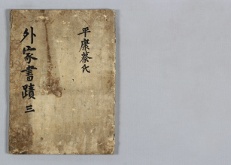 平康蔡氏
外家書蹟 三